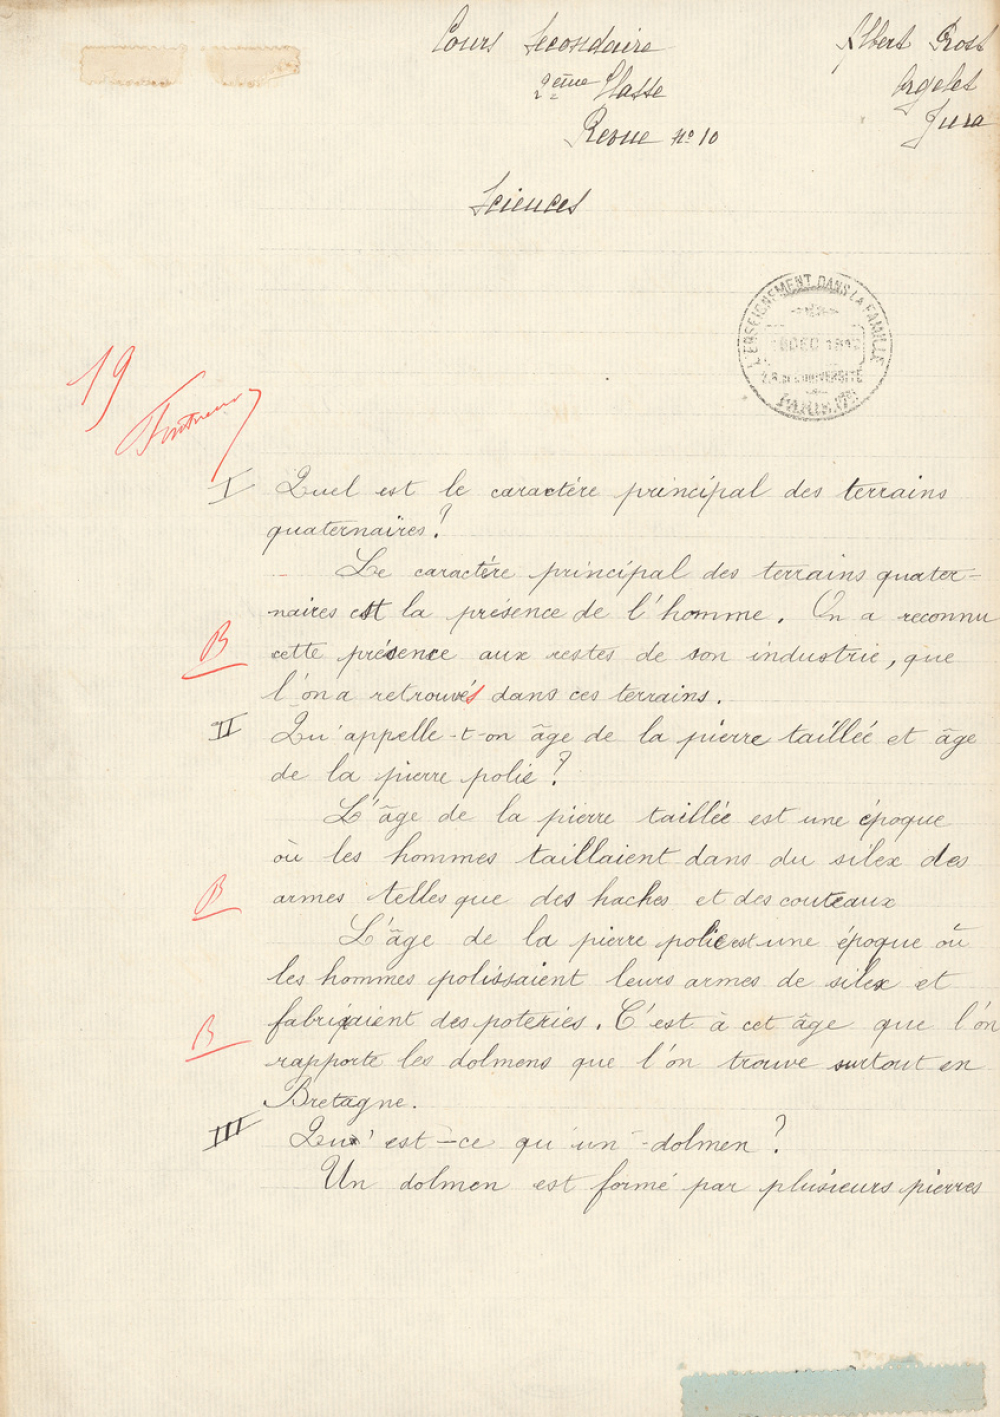 Cours Secondaire
Albert Prost
2ème Classe
Orgelet
Revue No 10
Jura
Sciences
L'ENSEIGNEMENT DANS LA FAMILLE
DEC 191
2, R. DE L'UNIVERSITÉ
PARIS.
19
I Quel est le caractère principal des terrains
quaternaires?
Le caractère principal des terrains quater-
naires est la présence de l'homme. On a reconnu
B cette présence aux restes de son industrie, que
l'on a retrouvés dans ces terrains.
II Qu'appelle-t-on âge de la pierre taillée et âge
de la pierre polie?
L'âge de la pierre taillée est une époque
où les hommes taillaient dans du silex des
B armes telles que des haches et des couteaux
L'âge de la pierre polie est une époque où
les hommes polissaient leurs armes de silex et
B fabriquaient des poteries. C'est à cet âge que l'on
rapporte les dolmens que l'on trouve surtout en
Bretagne.
III Qu'est-ce qu'un dolmen?
Un dolmen est formé par plusieurs pierres